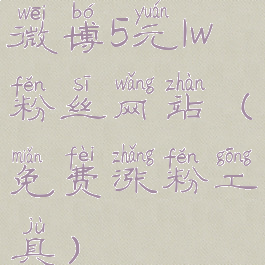 wēi bó yuán
微博5元1w
fěn sī wǎng zhàn
粉丝网站（
miǎn fèi zhǎng fěn gōng
免费涨粉工
jù
具）